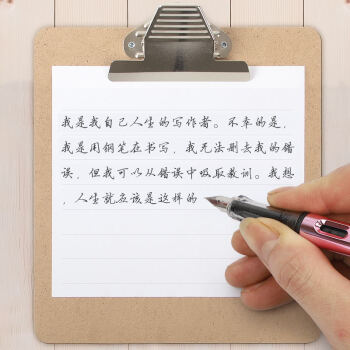 我是我自己人生的写作者。不幸的是，
我是用钢笔在书写，我无法删去我的错
误，但我可以从错误中吸取教训。我想
，人生就应该是这样的